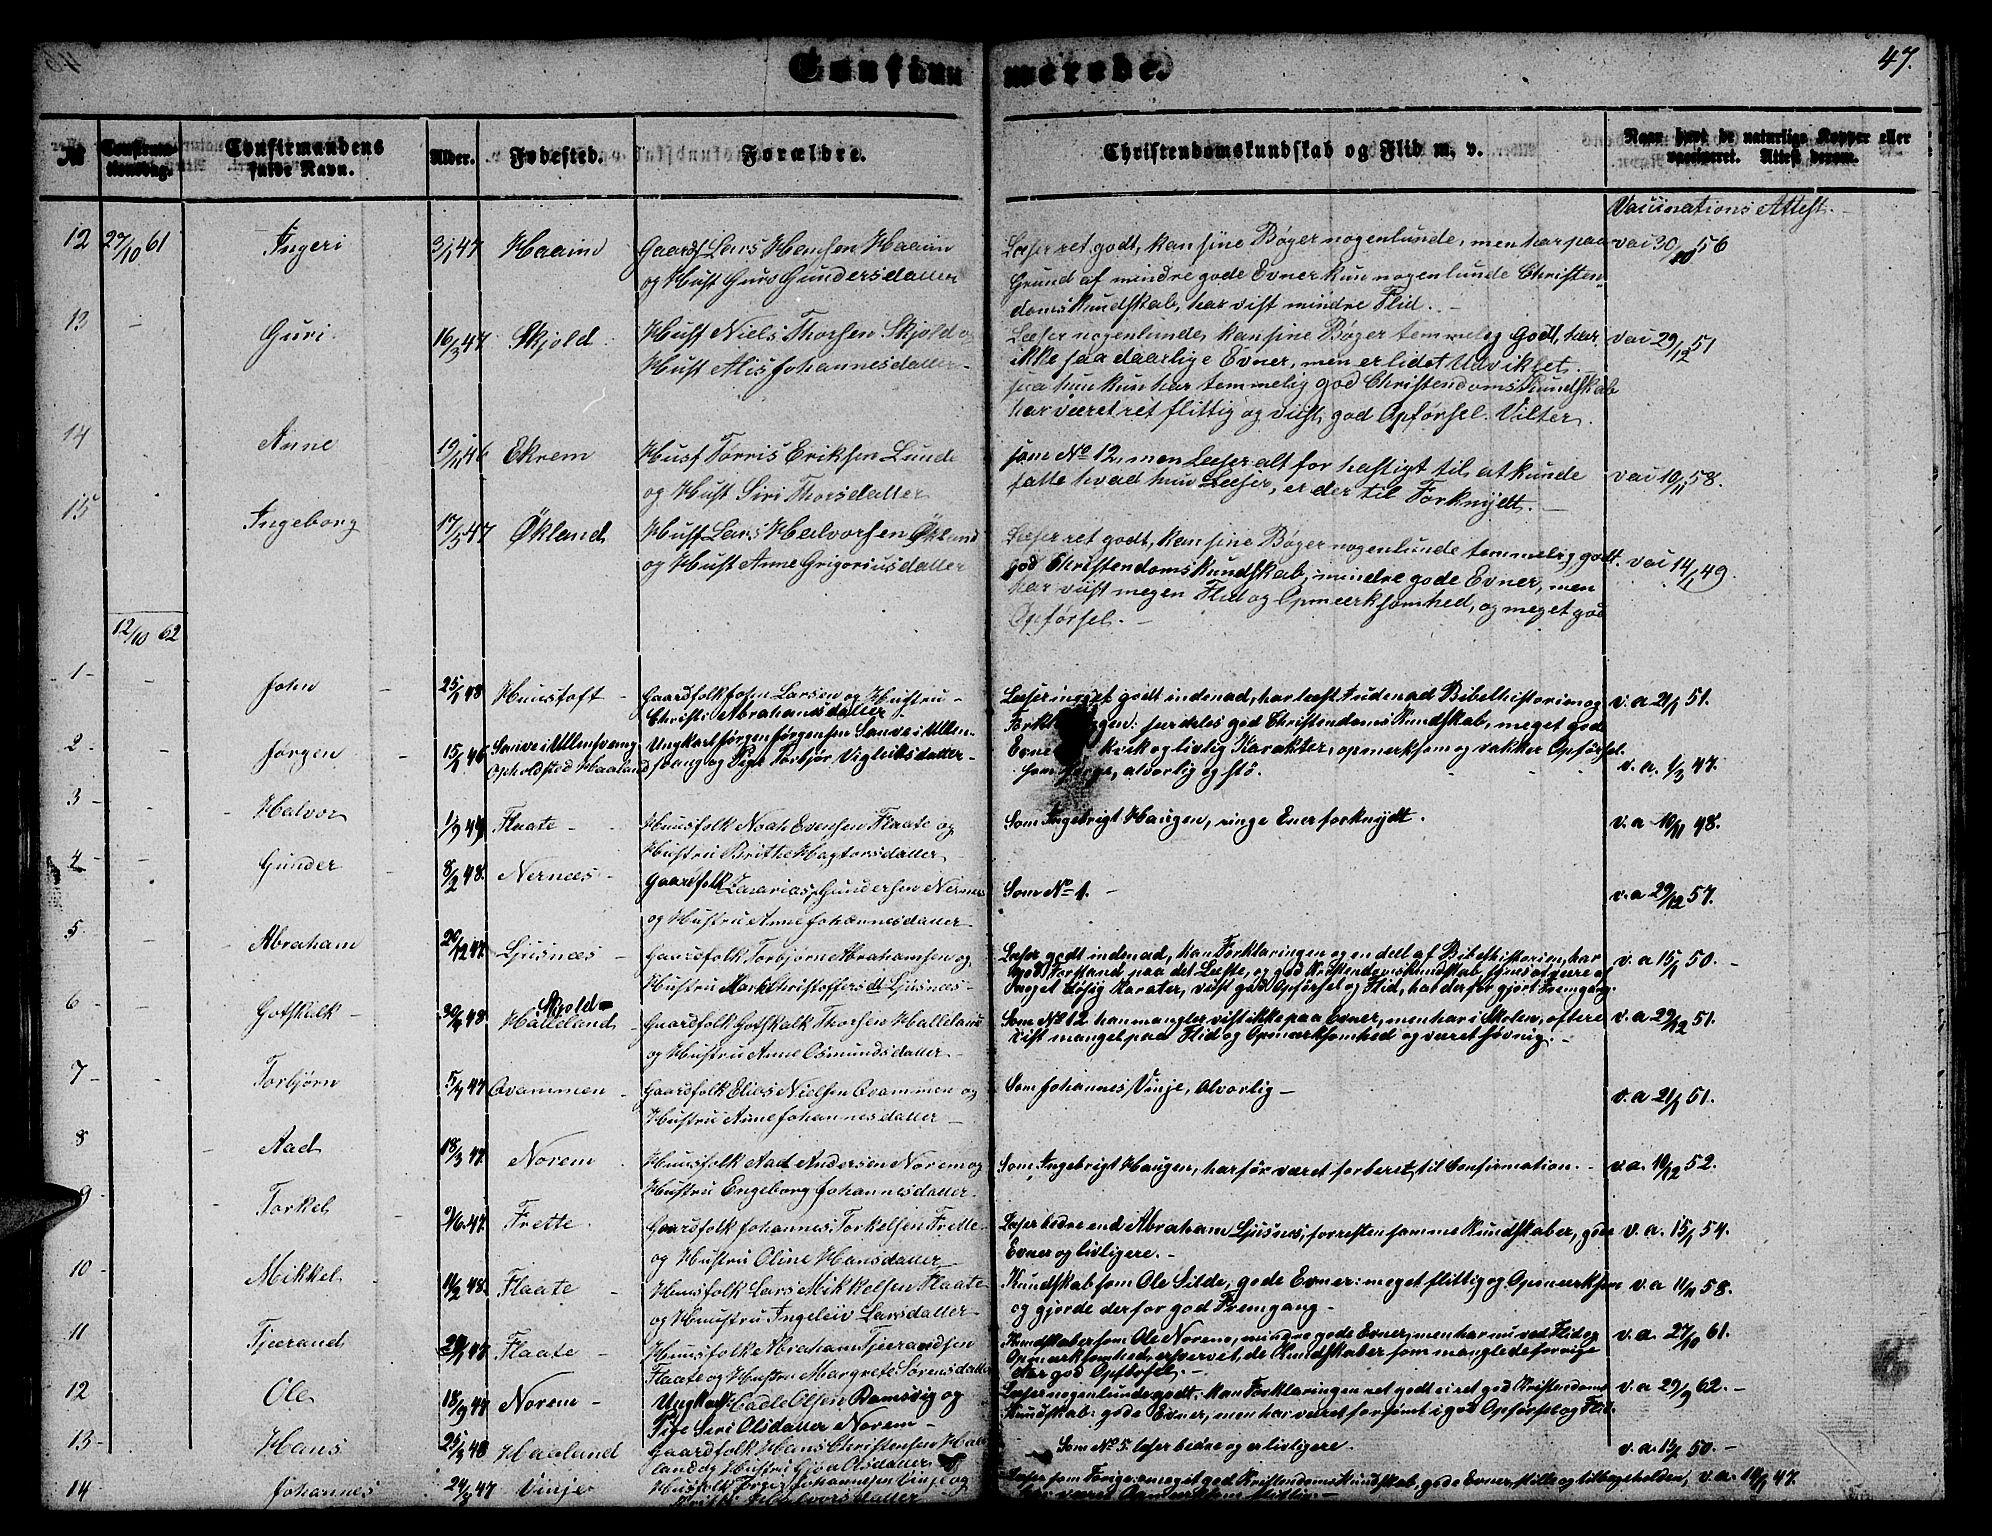 Confir merede.
47.
№ Confirmationsdag. Confirmandens fulde Navn. Alder. Fødested. Forældre. Christendomskundskab og Flid m. v. Naar havt de naturlige Kopper eller vaccineret. Attest derom.
Vaccinations Attest.
12 27/10 61 Ingeri 3/1 47 Haaim Gaardf Lars Hansen Haaim Læser ret godt, kan sine Bøger nogenlunde, men har paa vac 30/10 56
og Hust Guro Gundersdatter Grund af mindre gode Evner kun nogenlunde Christen-
domskundskab, har vist mindre Flid.
13 - Guri 16/3 47 Skjold Husf Niels Thorsen Skjold og Læser nogenlunde, kan sine Bøger temmelig Godt, har vac 29/12 51
Hust Alis Johannesdatter ikke saa daarlige Evner, men er lidet Udviklet
saa hun kun har temmelig god Christendoms Kundskab
har været ret flittig og viist god Opførsel. Vilter.
14 Anne 19/11 46 Ekrem Husf Tørris Eriksen Lunde som № 12, men Læser alt for hastigt til at kunde vac 10/11 58.
og Hust Siri Thorsdatter fatte hvad hun Læser, er der til Forknydt.
15 Ingeborg 17/5 47 Økland Husf Lars Halvorsen Økland Læser ret godt, kan sine Bøger nogenlunde temmelig godt. vac 14/1 49.
og Hust Anne Grigoriusdatter god Christendomskundskab, mindre gode Evner, men
har viist megen Flid og Opmærksomhed, og meget god
Opførsel.
12/10 62
1 - John - 25/1 48 Huustoft - Gaardfolk John Larsen og Hustru - Læser meget godt indenad, har læst udenad Bibelhistorien og v. a 21/1 51.
Christi Abrahamsdatter god Christendoms Kundskab, meget gode
2 - Jørgen - 15/2 46 Sauve i Ullensvang Ungkarl Jørgen Jørgensen Sauve i Ullen- kvik og livlig Karakter, opmerksom og vakker Opførsel.
Opholdsted Haaland svang og Pige Torbjør Vigleiksdatter - alvorlig og stø. v. a. 1/3 47.
3 - Halvor 1/9 49 Flaate - Huusfolk Noah Evensen Flaate og Som Ingebrigt Haugen, ringe Evner forknydt. v. a 10/11 48.
Hustru Brithe Hagtorsdatter
4 - Gunder 8/2 48. Nernæs - Gaardfolk Zacarias Gundersen Nernæs Som № 1. - v. a 29/12 57.
og Hustru Anne Johannesdatter
5 - Abraham 20/12 47. Ljusnæs - Gaardfolk Torbjørn Abrahamsen og Læser godt indenad, kan Forklaringen og en deel af Bibelhistorien, har v. a 15/1 50. -
Hustru Christoffersdt Ljusnæs - god Forstand paa det Læste, og god Kristendomskundskab,
meget Karater, viist god Opførsel og Flid, har derfor gjort Fremgang.
6 - Gotskalk 48. Skjold=
Halleland - Gaardfolk Gotskalk Thorsen Halleland Som № 12 han mangler vist ikke paa Evner, men har i Skolen, oftere v. a 29/12 51.
og Hustru Anne Osmundsdatter vist mangel paa Flid og Opmærksomhed og været søvnig.
7 - Torbjørn 5/9 47 Ovammen - Gaardfolk Elias Nielsen Ovammen og Som Johannes Vinje, Alvorlig - v. a 21/1 51.
Hustru Anne Johannesdatter
8 - Aad 18/3 47. Norem Huusfolk Aad Andersen Norem og Som Ingebrigt Haugen, har før været forberet til Confirmation. - v. a. 10/12 52.
Hustru Engeborg Johannesdatter
9 - Torkel 9/6 47. Frette. Gaardfolk Johannes Torkelsen Frette Læser bedre end Abraham Ljusnes, forresten samme Kundskaber, gode v. a. 15/1 54.
og Hustru Oline Hansdatter Evner og livligere. -
10 - Mikkel 11/2 48. Flaate - Huusfolk Lars Mikkelsen Flaate Kundskab som Ole Silde, gode Evner: meget flittig og Opmærksom v. a 11/11 58.
og Hustru Ingeleiv Larsdatter - og gjorde derfor god Fremgang -
11 Tjærand 47 Flaate - Huusfolk Abraham Tjerandsen Kundskaber som Ole Norem, mindre gode Evner, men har nu ved Flid og v. a. 27/10 61.
Flaate og Hustru Margrete Sørensdatter Opmærksomhed, erhvervet de Kundskaber som manglede forrige
Aar god Opførsel. -
12 Ole 18/9 47 Norem - Ungkarl Cadle Olsen Ramsvig og Læser nogenlunde godt. kan Forklaringen ret godt ret god Kristendoms v. a 29/9 62. -
Pige Siri Olsdatter Norem - Kundskab: gode Evner, men har været forsømt god Opførsel og Flid.
13 - Hans 25/3 48 Haaland Gaardfolk Hans Christensen Haa Som № 5. læser bedre og er livligere. v. a. 15/1 50. -
land og Hustru Olsdatter
14 Johannes 24/3 47 Vinje Husfolk Johannesen Vinje og Læser som Forige, meget god Kristendoms Kundskab, gode Evner, stille og tilbageholden, v. a. 14/1 47.
Halvorsdatter